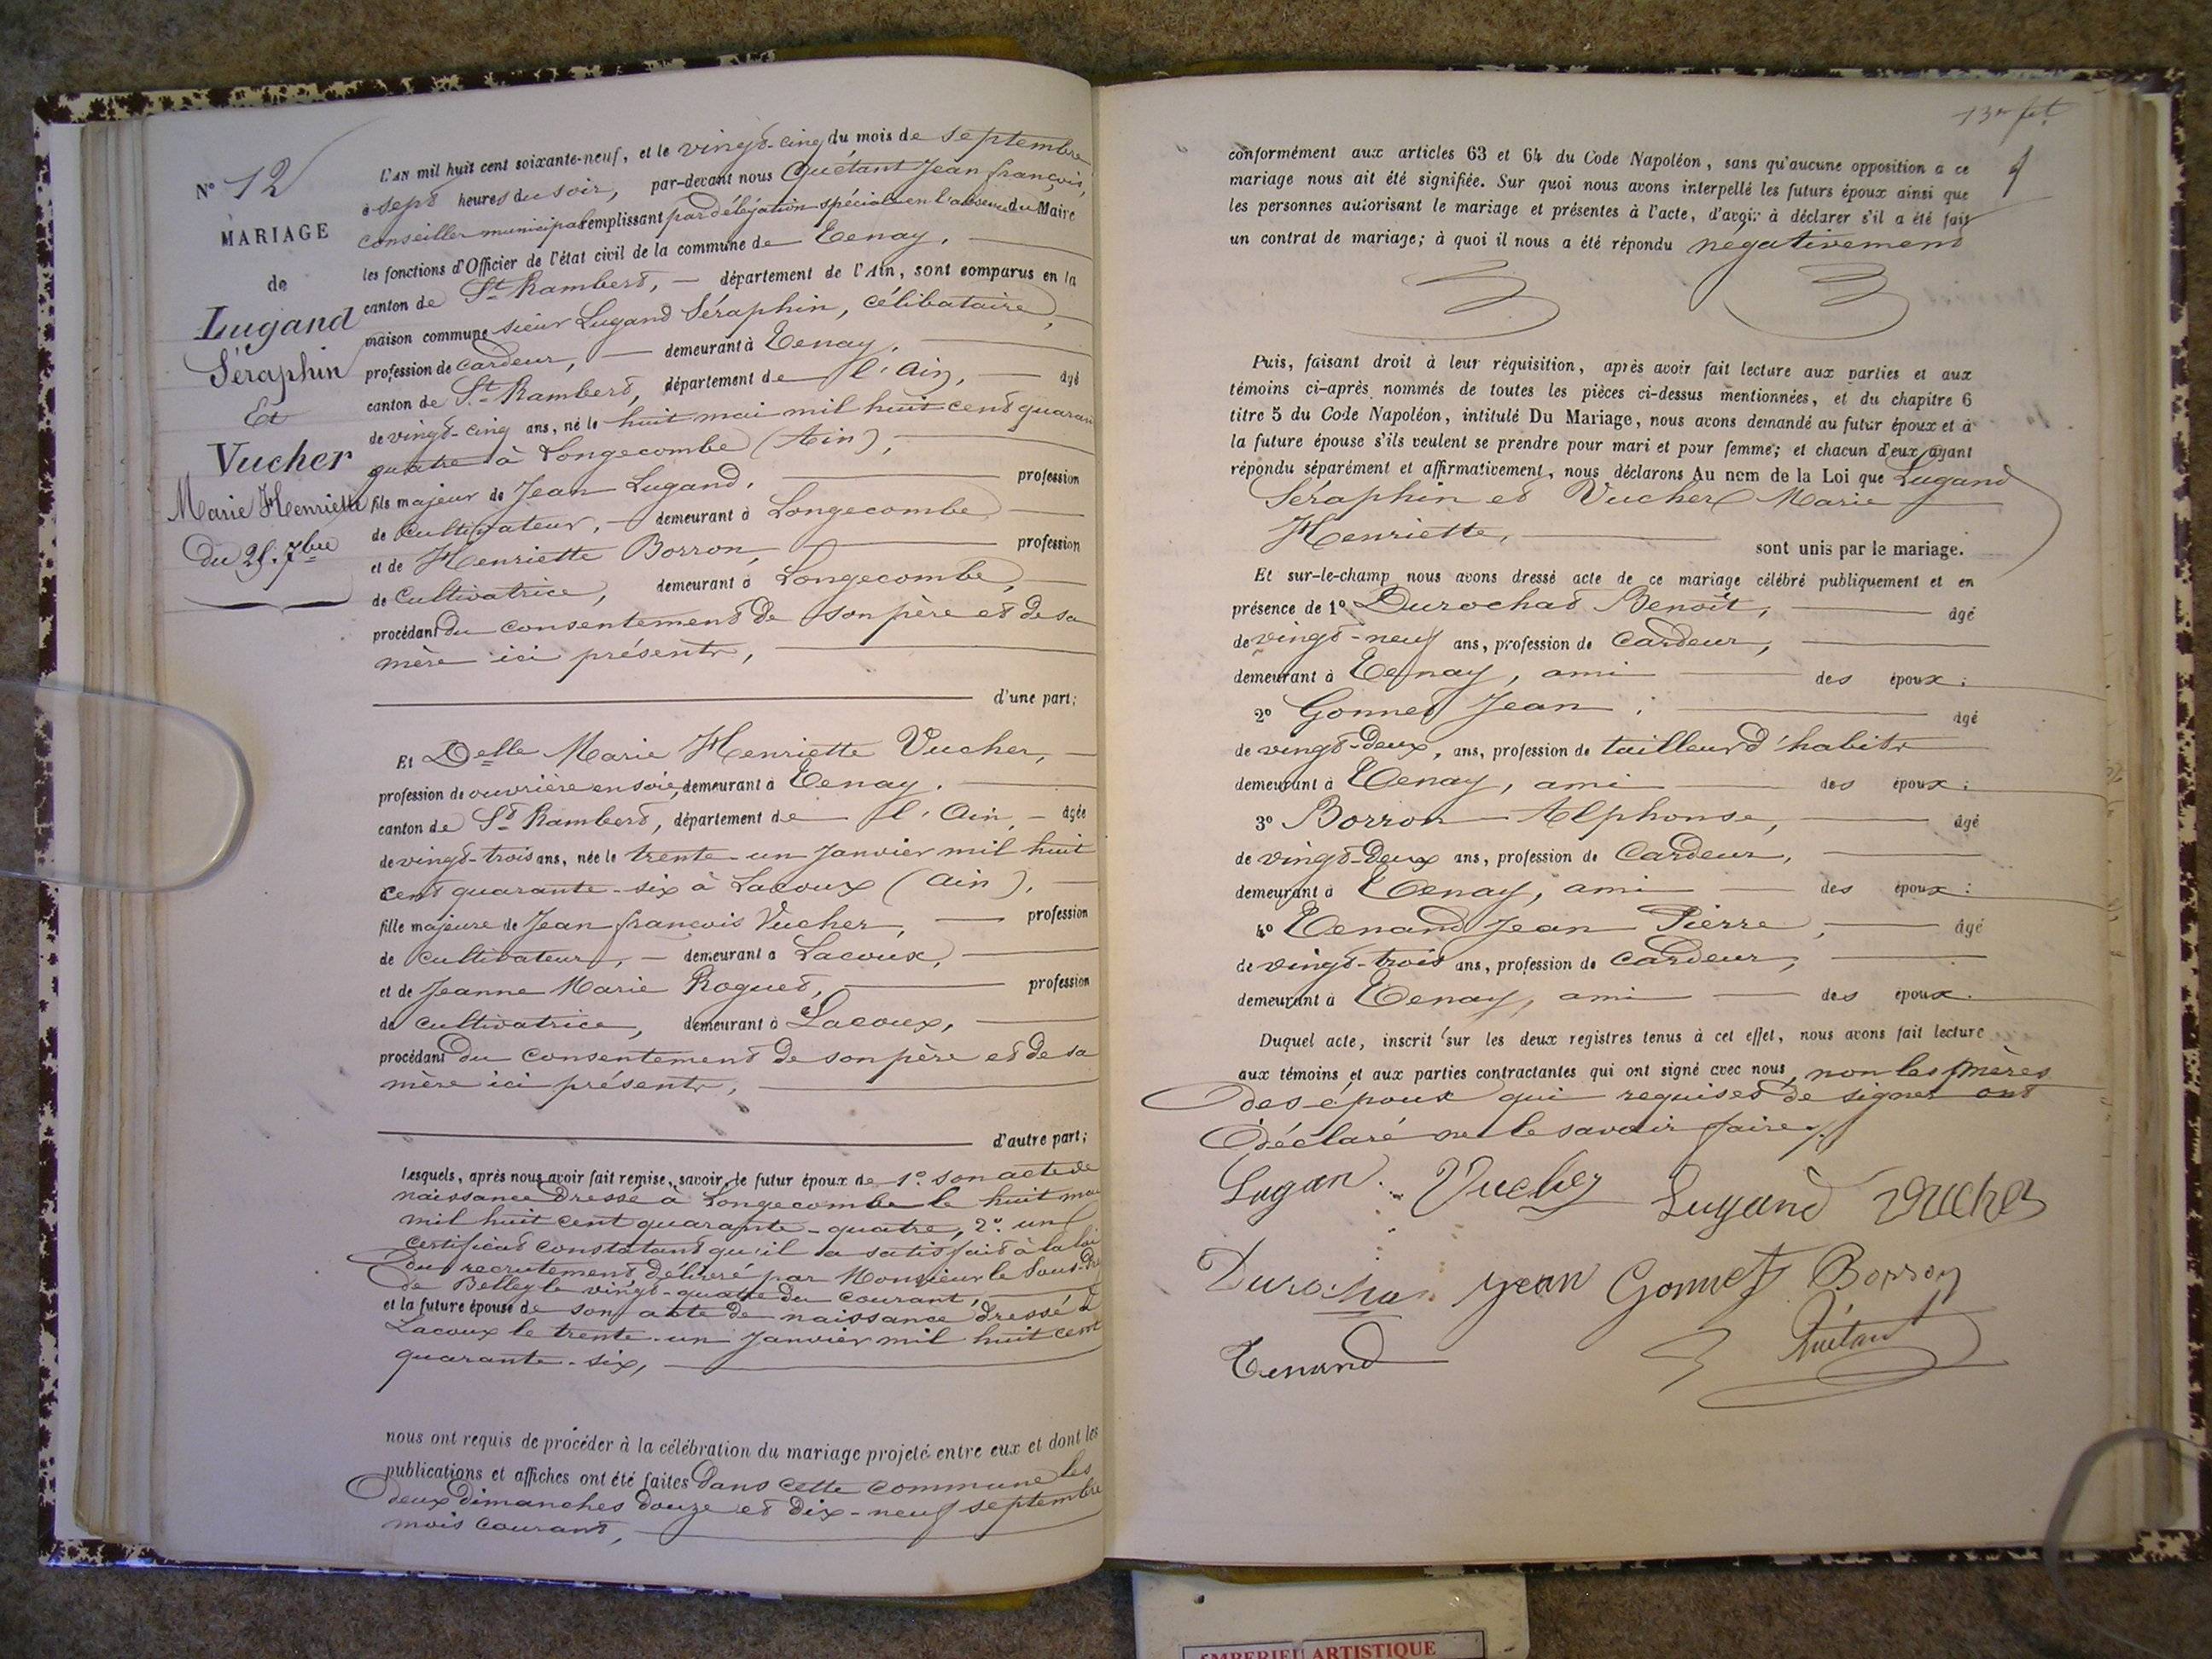 N° 12
MARIAGE
de
Lugand
Séraphin
Et
Vucher
Marie Henriette
du 25. 7bre
L'AN mil huit cent soixante-neuf, et le vingt-cinq du mois de septembre
à sept heures du soir, par-devant nous Quétant Jean françois,
conseiller municipal remplissant par délégation spéciale en l'absence du Maire
les fonctions d'Officier de l'état civil de la commune de Tenay,
canton de St Rambert, département de l'Ain, sont comparus en la
maison commune sieur Lugand Séraphin, célibataire,
profession de cardeur, demeurant à Tenay,
canton de St Rambert, département de l'Ain, âgé
de vingt-cinq ans, né le huit mai mil huit cent quaran
quatre à Longecombe (Ain),
fils majeur de Jean Lugand, profession
de cultivateur, demeurant à Longecombe
et de Henriette Borron, profession
de Cultivatrice, demeurant à Longecombe,
procédant du consentement de son père et de sa
mère ici présents,
d'une part;
Et Delle Marie Henriette Vucher,
profession de ouvrière en soie, demeurant à Tenay,
canton de St Rambert, département de l'Ain, âgée
de vingt-trois ans, née le trente-un Janvier mil huit
cent quarante-six à Lacoux (Ain),
fille majeure de Jean françois Vucher, profession
de cultivateur, demeurant à Lacoux,
et de Jeanne Marie Roguet, profession
de cultivatrice, demeurant à Lacoux,
procédant du consentement de son père et de sa
mère ici présents,
d'autre part;
Lesquels, après nous avoir fait remise, savoir, le futur époux de 1°. son acte de
naissance dressé à Longecombe le huit mai
mil huit cent quarante-quatre, 2°. un
certificat constatant qu'il a satisfait à la loi
du recrutement délivré par Monsieur le Sous-Pré
de Belley le vingt-quatre du courant,
et la future épouse de son acte de naissance dressé à
Lacoux le trente-un Janvier mil huit cent
quarante-six,
nous ont requis de procéder à la célébration du mariage projeté entre eux et dont les
publications et affiches ont été faites dans cette commune les
deux dimanches douze et dix-neuf septembre
mois courant,
conformément aux articles 63 et 64 du Code Napoléon, sans qu'aucune opposition a ce
mariage nous ait été signifiée. Sur quoi nous avons interpellé les futurs époux ainsi que
les personnes autorisant le mariage et présentes à l'acte, d'avoir à déclarer s'il a été fait
un contrat de mariage; à quoi il nous a été répondu négativement
Puis, faisant droit à leur réquisition, après avoir fait lecture aux parties et aux
témoins ci-après nommés de toutes les pièces ci-dessus mentionnées, et du chapitre 6
titre 5 du Code Napoléon, intitulé Du Mariage, nous avons demandé au futur époux et à
la future épouse s'ils veulent se prendre pour mari et pour femme; et chacun d'eux ayant
répondu séparément et affirmativement, nous déclarons Au nom de la Loi que Lugand
Séraphin et Vucher Marie
Henriette, sont unis par le mariage.
Et sur-le-champ nous avons dressé acte de ce mariage célébré publiquement et en
présence de 1° Durochat Benoît, âgé
de vingt-neuf ans, profession de Cardeur,
demeurant à Tenay, ami des époux;
2° Gonnet Jean, âgé
de vingt-deux, ans, profession de tailleur d'habits
demeurant à Tenay, ami des époux;
3° Borron Alphonse, âgé
de vingt-deux ans, profession de Cardeur,
demeurant à Tenay, ami des époux;
4° Tenand Jean Pierre, âgé
de vingt-trois ans, profession de Cardeur,
demeurant à Tenay, ami des époux.
Duquel acte, inscrit sur les deux registres tenus à cet effet, nous avons fait lecture
aux témoins et aux parties contractantes qui ont signé avec nous, non les mères
des époux qui requises de signer ont
déclaré ne le savoir faire.
Lugan Vucher Lugand Vucher
Durochat Jean Gonnet Borron
Tenand Quétant
AMBERIEU ARTISTIQUE